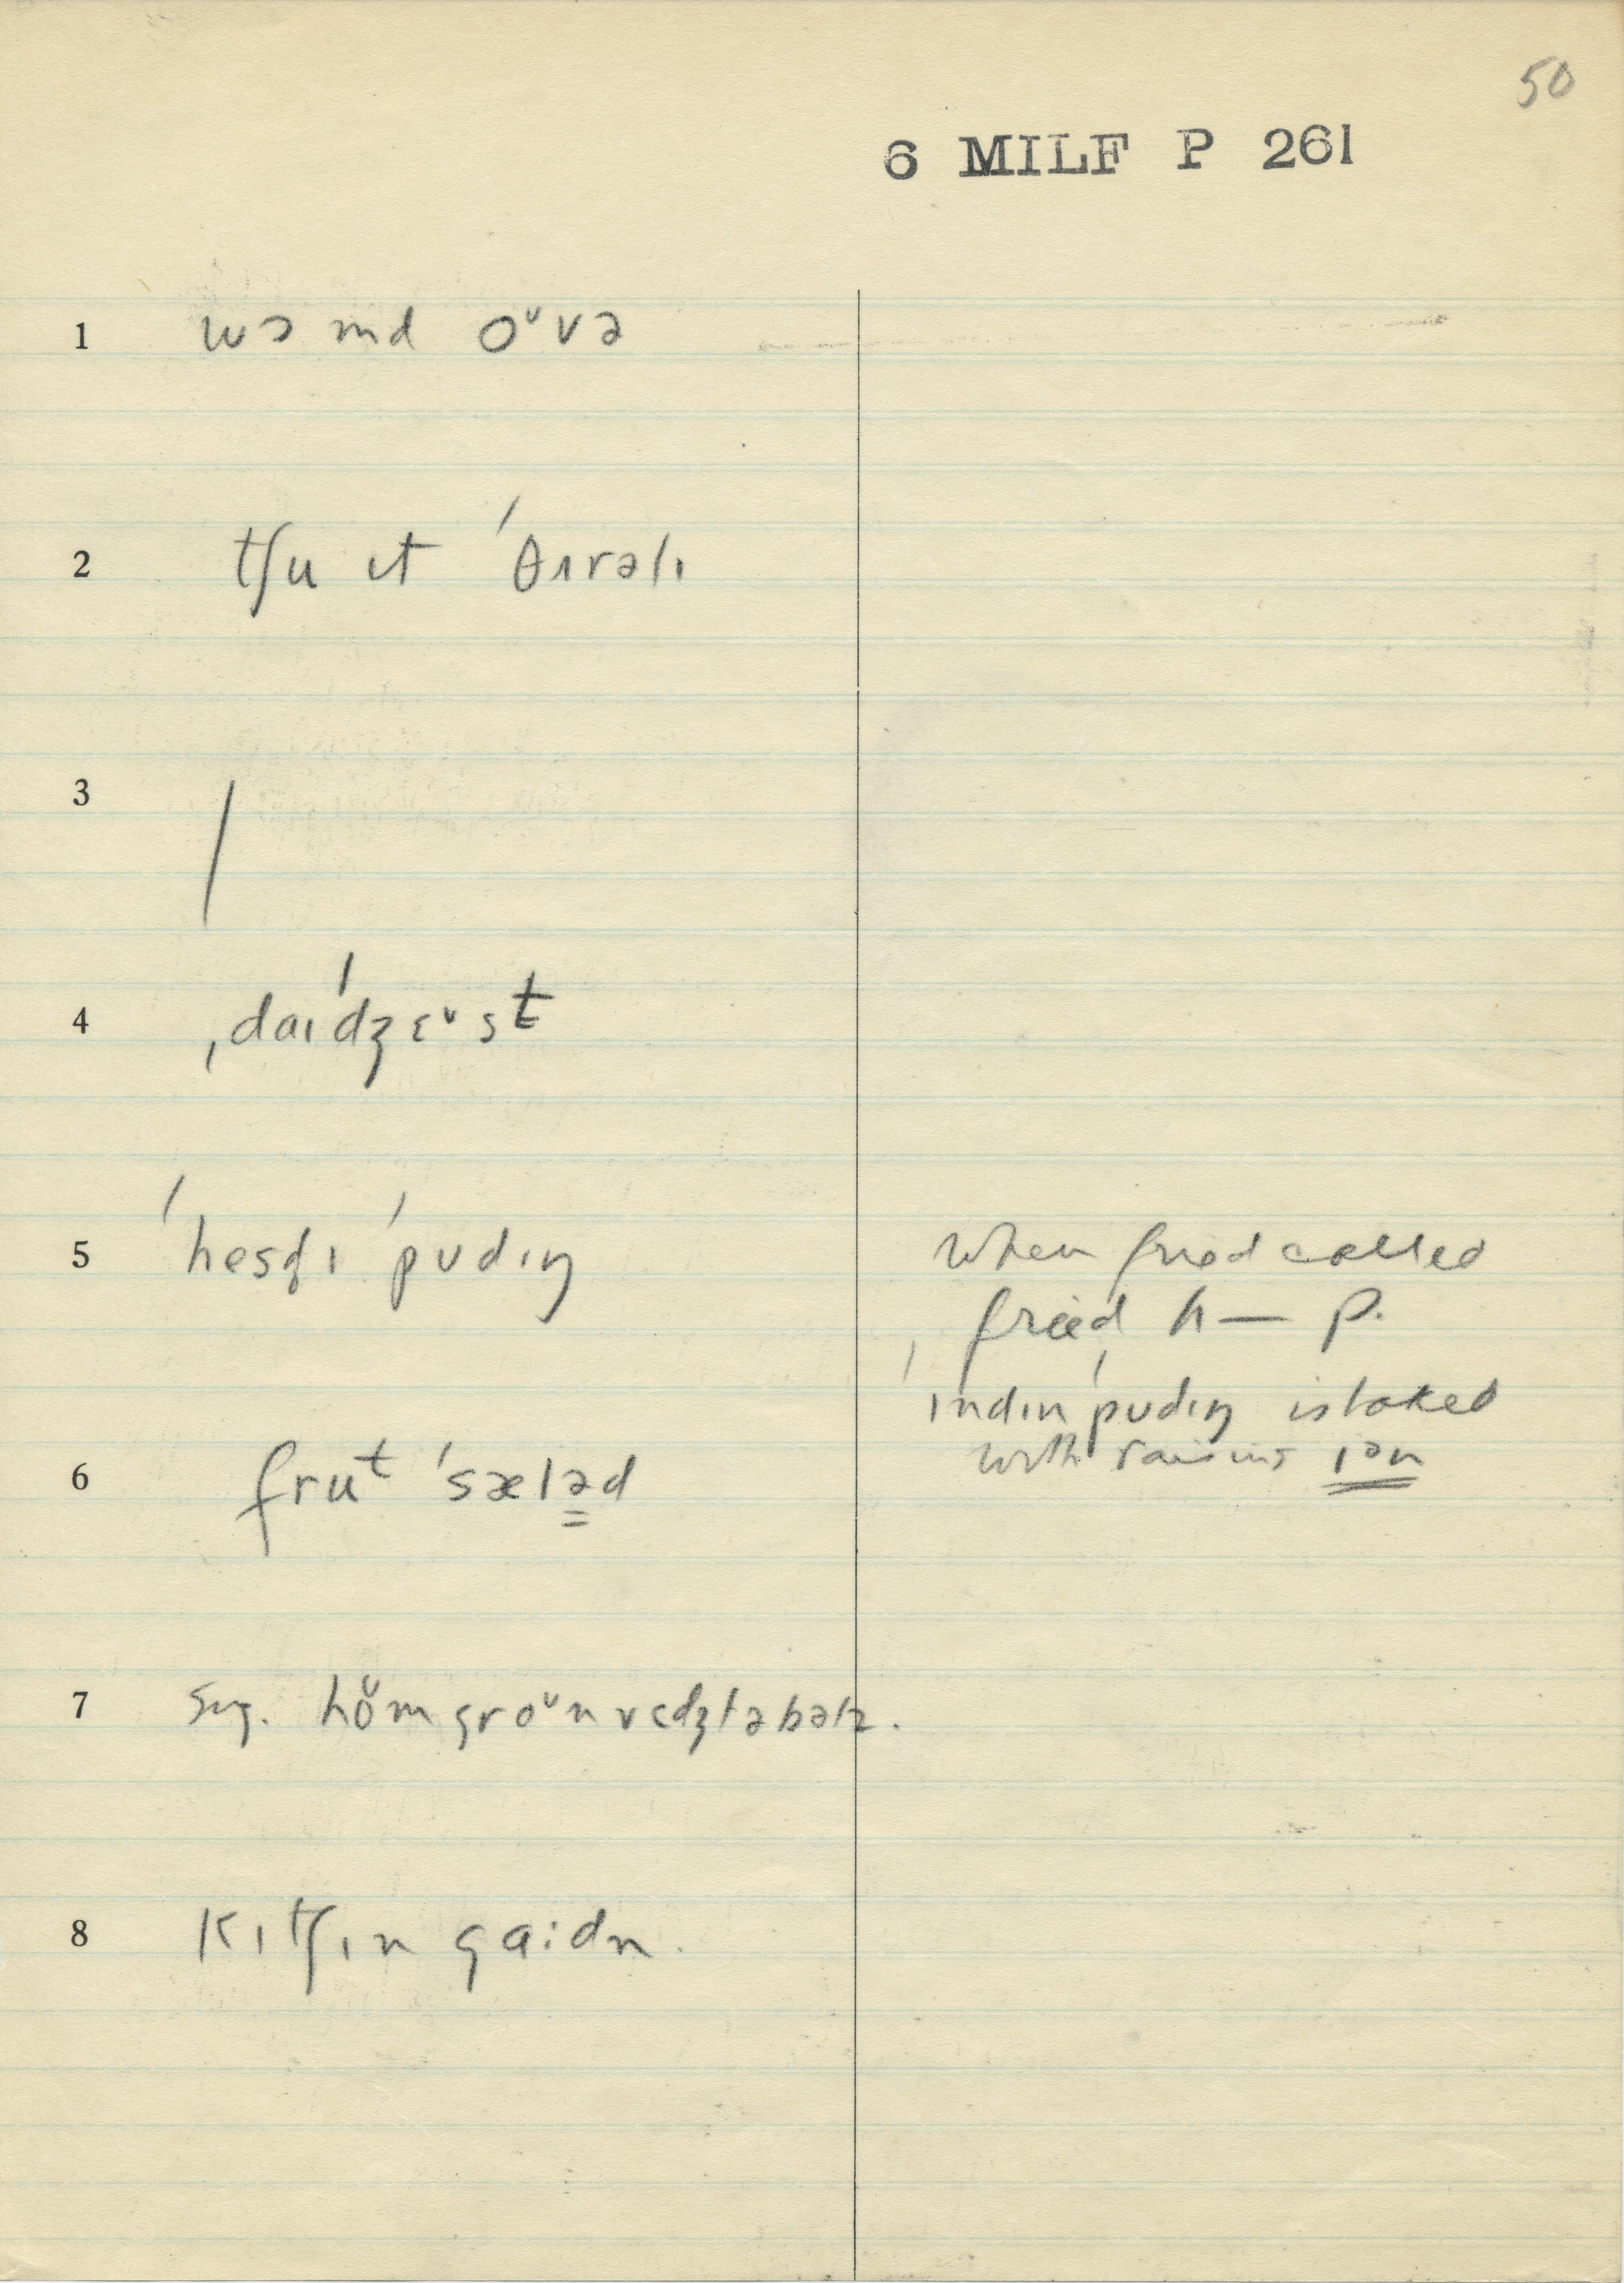 50
6 MILF P 261
1 wɔ md oᵛvə
2 tʃu ɪt ˈθɪrəlɪ
3 /
4 ˌdaɪˈdʒɛᵛst
5 ˈhesʧɪ ˈpʊdɪŋ
when fried called
fried h— p.
ˈɪndɪn ˈpʊdɪŋ is baked
with raisins
6 fruᵗ ˈsæləd
7 sug. hoᵛm groᵛn vɛdʒtəbəlz.
8 kɪtʃɪn gaːdn.